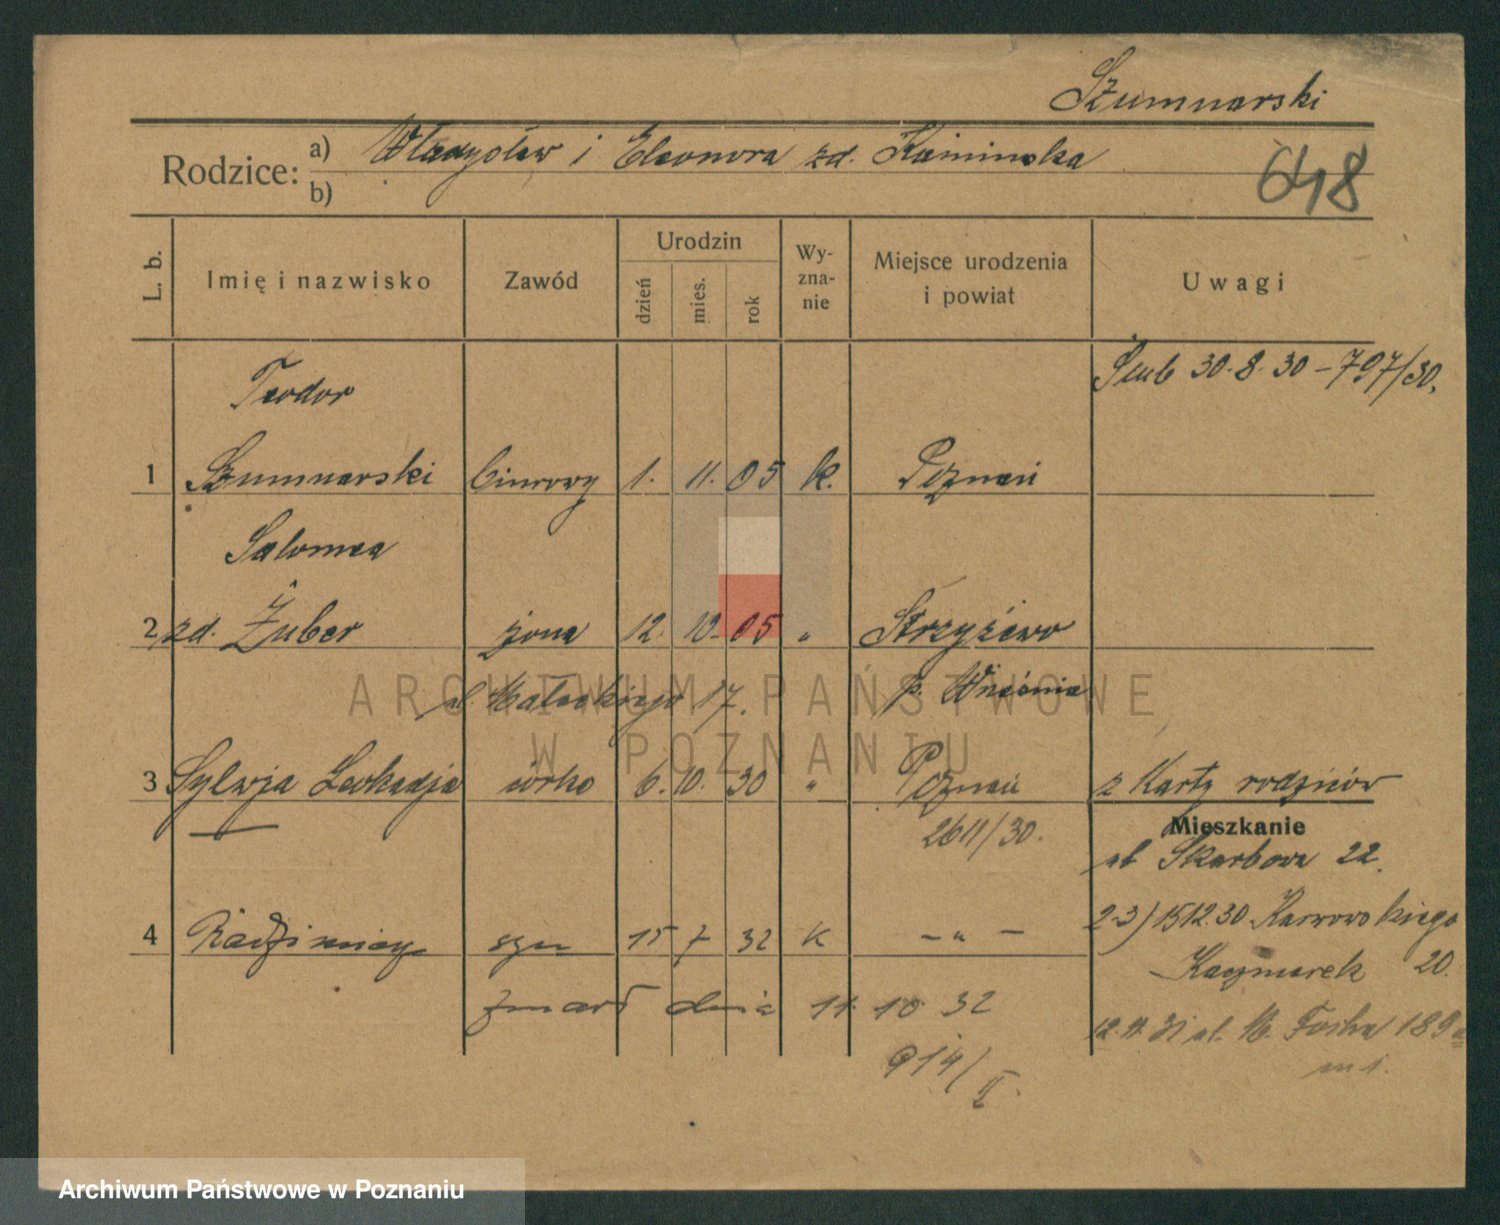 Szumnarski
Rodzice: a) Władysław i Eleonora zd. Kaminska
b)
648
L. b. Imię i nazwisko Zawód Urodzin dzień mies. rok Wy-zna-nie Miejsce urodzenia i powiat Uwagi
Teodor Ślub 30.8.30 – 797/30.
1 Szumnarski biurowy 1. 11. 05 k. Poznań
Salomea
2 zd. Żuber żona 12. 10. 05 " Strzyżewo
ul. Małeckiego 17. p. Września
3 Sylwja Leokadja córka 6. 10. 30 " Poznań z Karty rodziców
2611/30. Mieszkanie
ul Skarbowa 22.
4 Radzimierz syn 15 7 32 k – " – 2-3) 15 12.30 Karwowskiego
Kaczmarek 20.
zmarł dnia 11. 10 32
12.11.31 ul. M. Focha 189
914/II. m 1.
ARCHIWUM PAŃSTWOWE
W POZNANIU
Archiwum Państwowe w Poznaniu